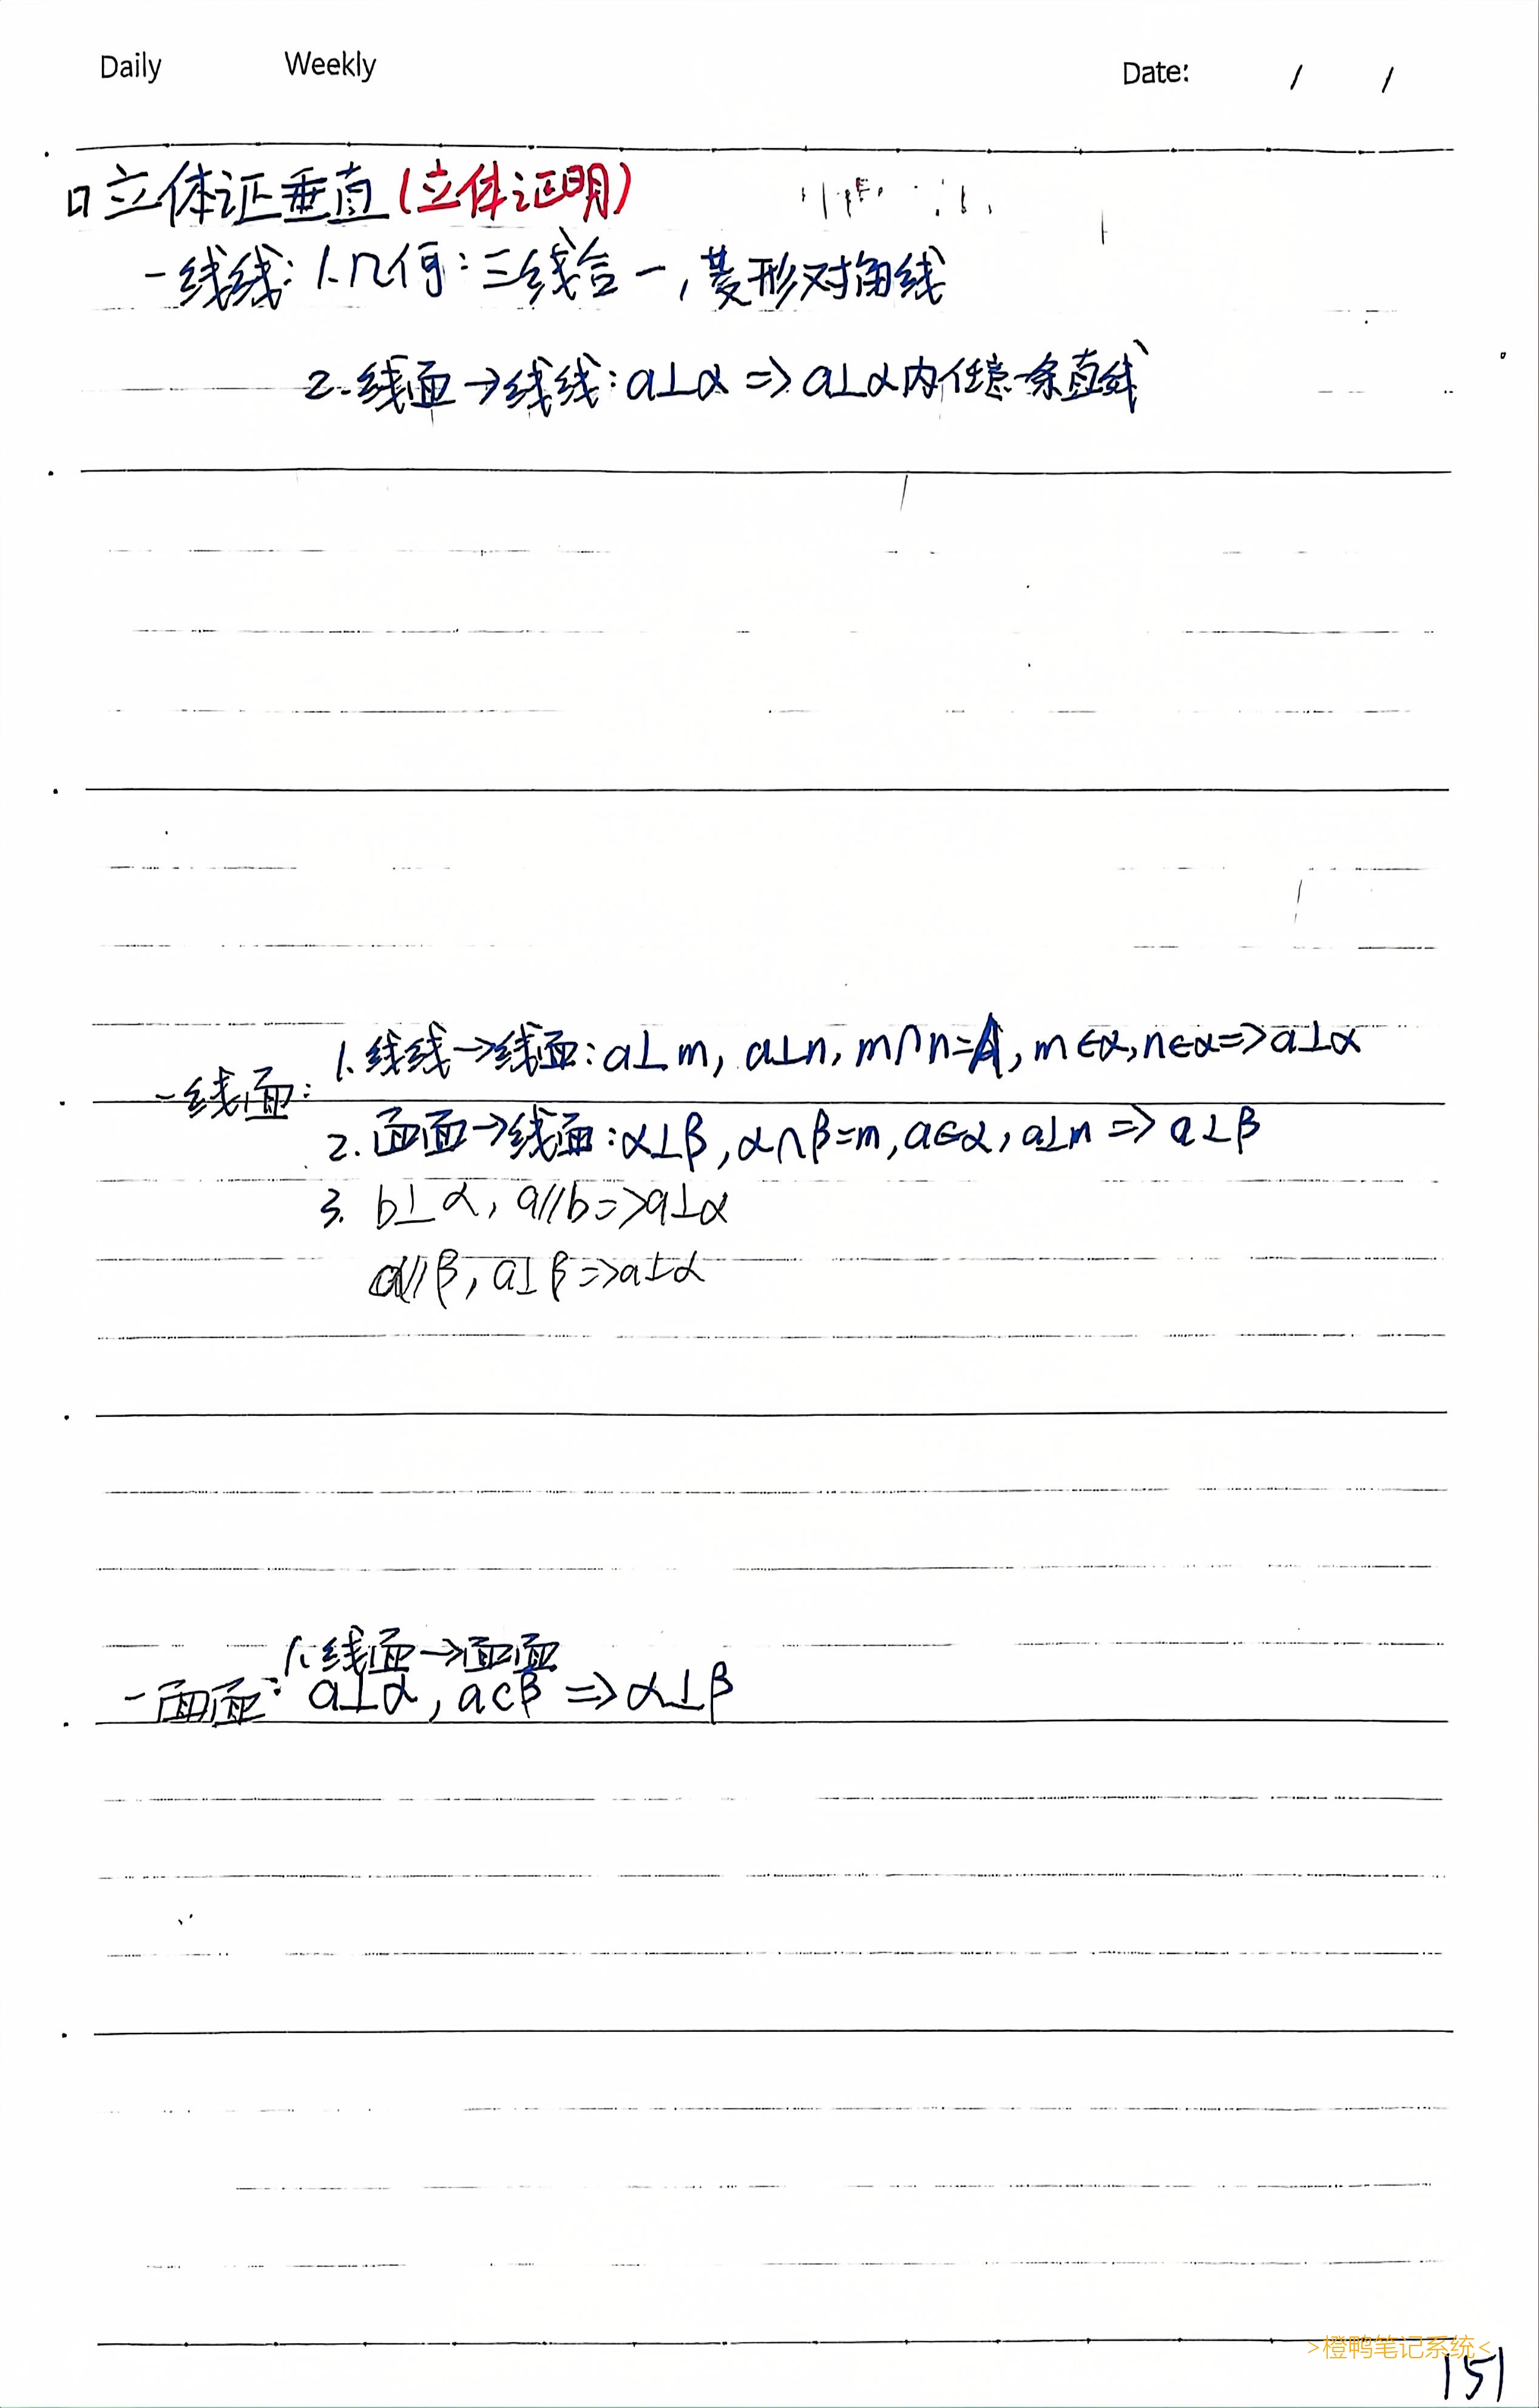 Daily Weekly Date: / /
口立体证垂直(立体证明)
-线线:1.几何:三线合一,菱形对角线
2.线面→线线:a⊥α=>a⊥α内任意一条直线
1.线线→线面:a⊥m, a⊥n, m∩n=A, m∈α, n∈α=>a⊥α
-线面:
2.面面→线面:α⊥β, α∩β=m, a∈α, a⊥m=>a⊥β
3. b⊥α, a//b=>a⊥α
α//β, a⊥β=>a⊥α
1.线面→面面
-面面: a⊥α, a⊂β=>α⊥β
>橙鸭笔记系统<
151